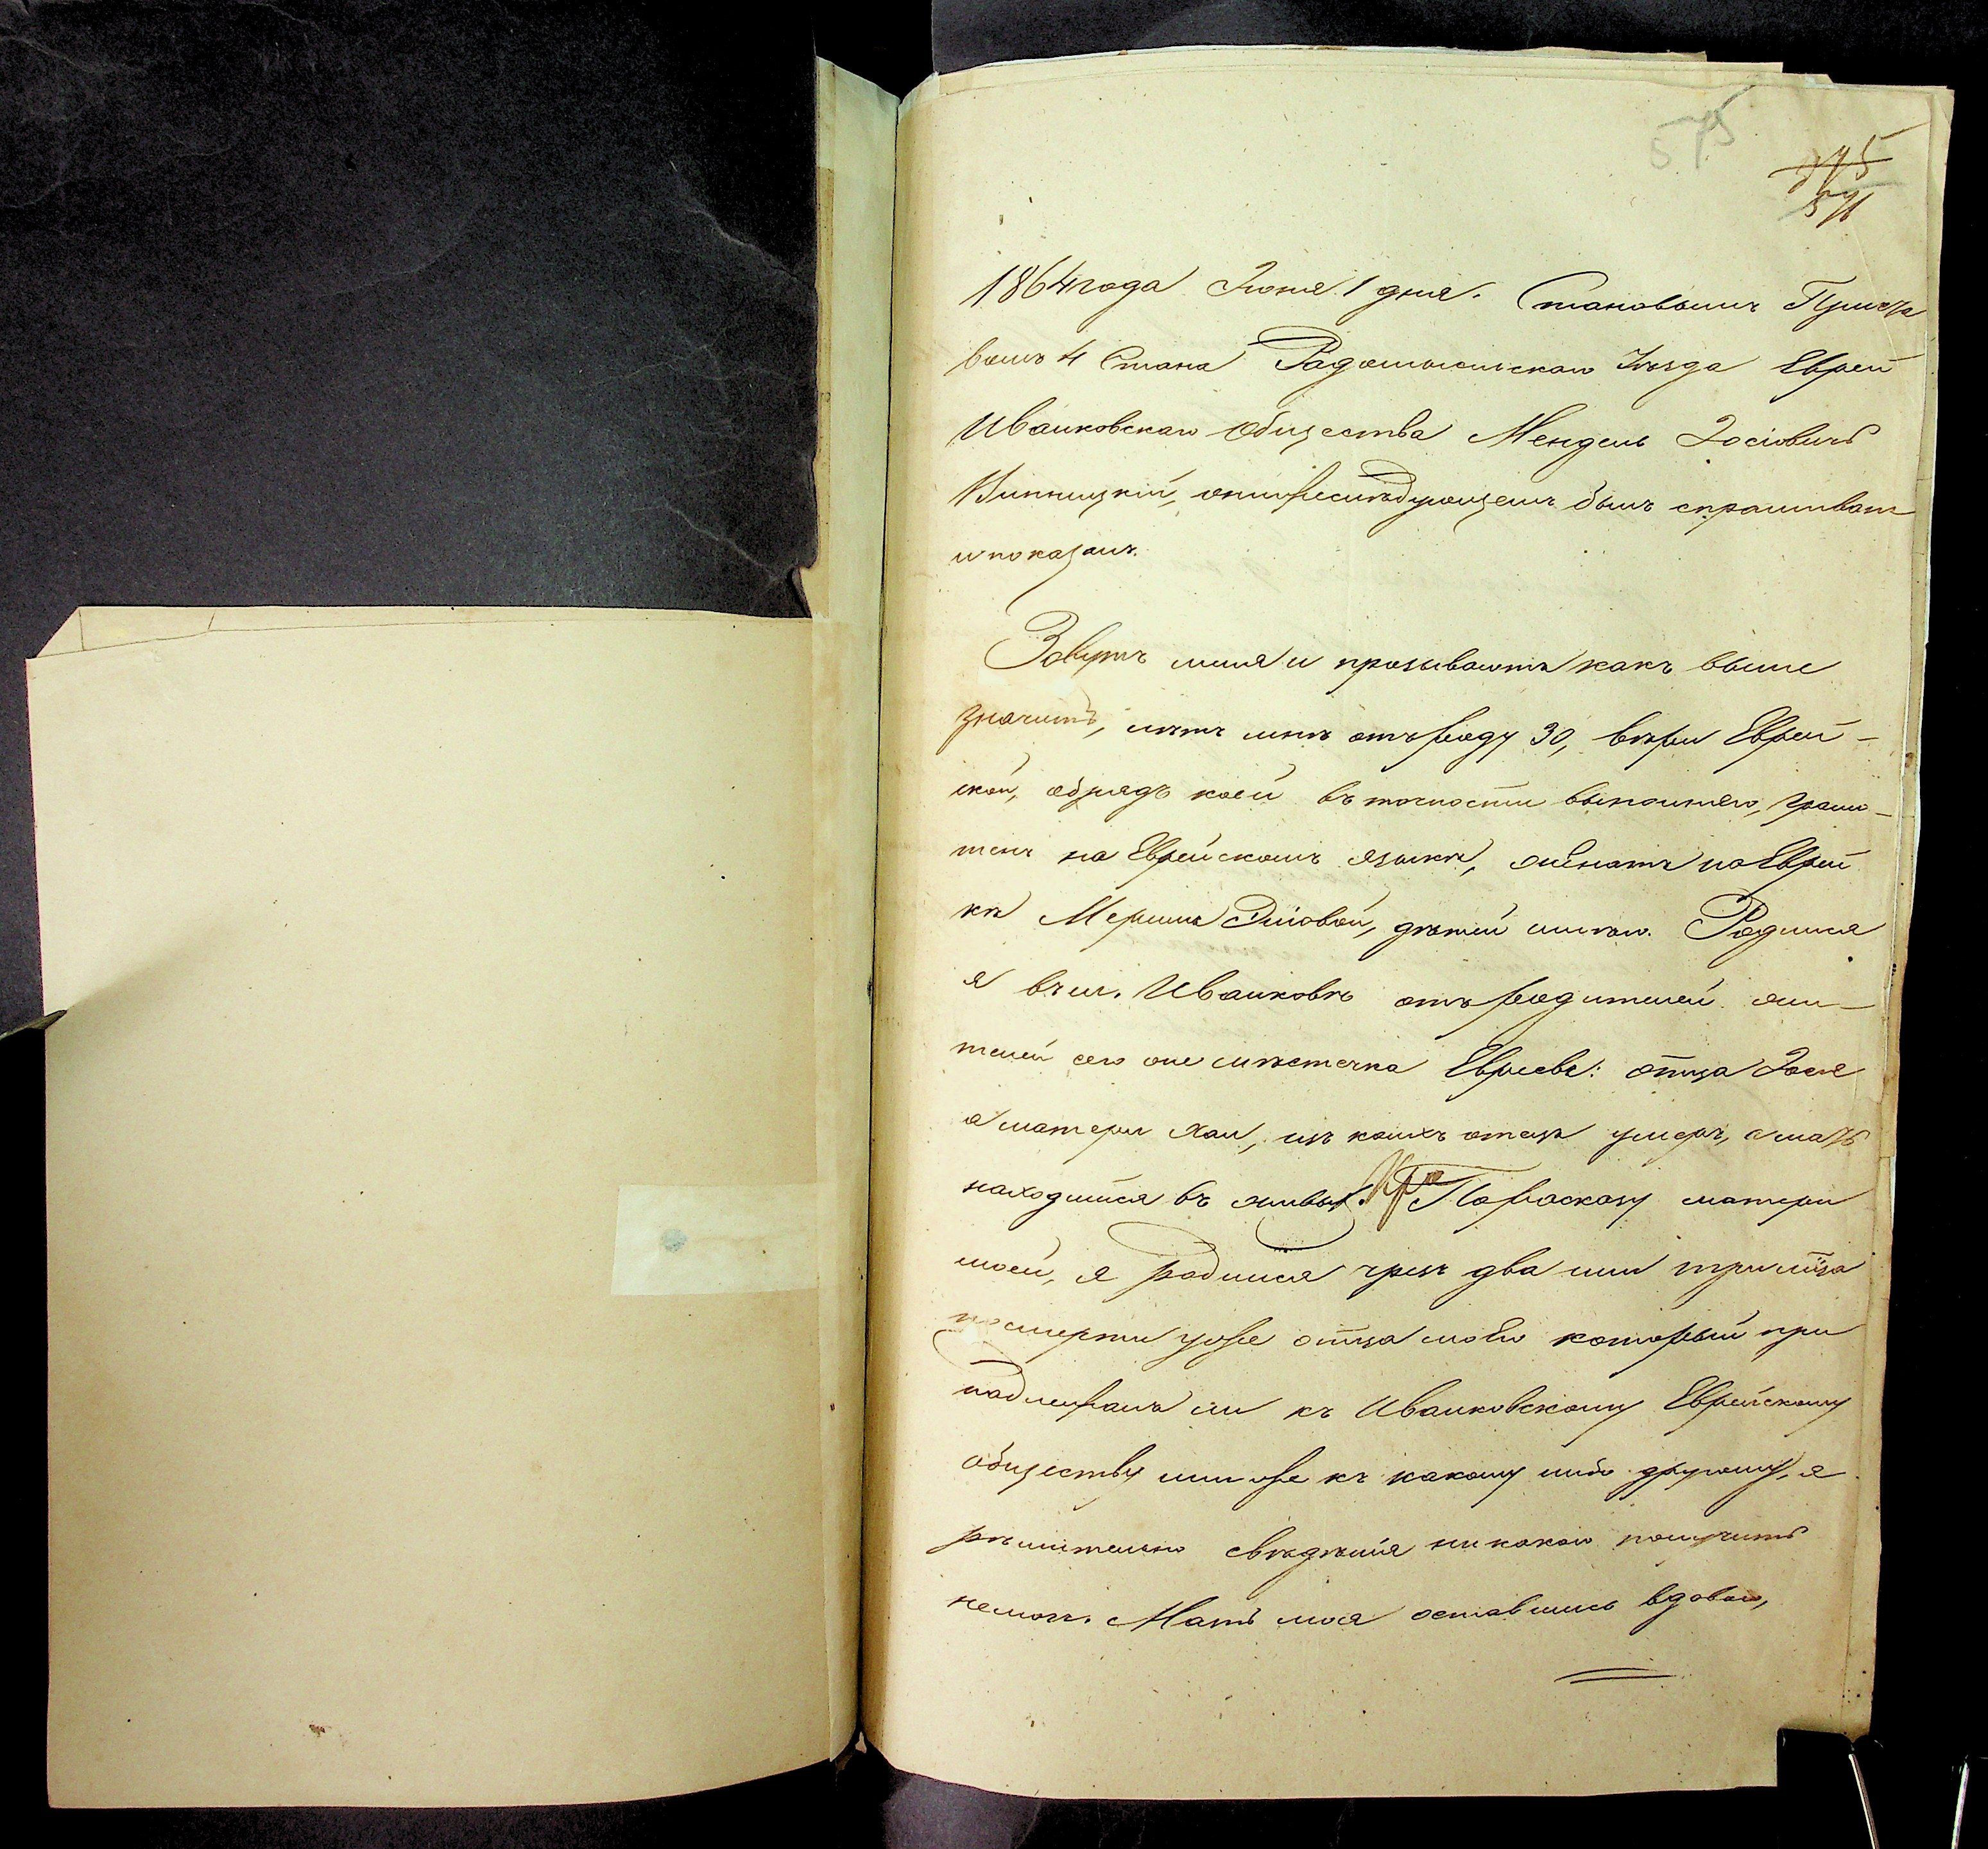 575
575
576
1864 года Июня 1 дня. Становымъ Приста
вомъ 4 Стана Радомысльскаго Уѣзда Еврей
Иванковскаго Общества Мендель Іосіовичъ
Винницкій, нижеслѣдующемъ былъ спрашиванъ
и показалъ.
Зовутъ меня и прозываютъ какъ выше
значитъ, лѣтъ мнѣ отъ роду 30, вѣры Еврей-
ской, обрядъ коей въ точности выполняю, грамо-
тенъ на Еврейскомъ языкѣ, женатъ на Еврей
кѣ, дѣтей имѣю. Родился
я въ м. Иванковѣ отъ родителей жи-
телей сего же мѣстечка Евреевъ: отца Іося
а матери Хаи, изъ коихъ отецъ умеръ, а мать
находится въ живыхъ. По разсказу матери
моей, я родился чрезъ два или три мѣсяца
по смерти уже отца моего который при
надлежалъ ли къ Иванковскому Еврейскому
обществу или же къ какому либо другому, я
рѣшительно свѣдѣнія никакого получить
не могъ. Мать моя оставшись вдовою,